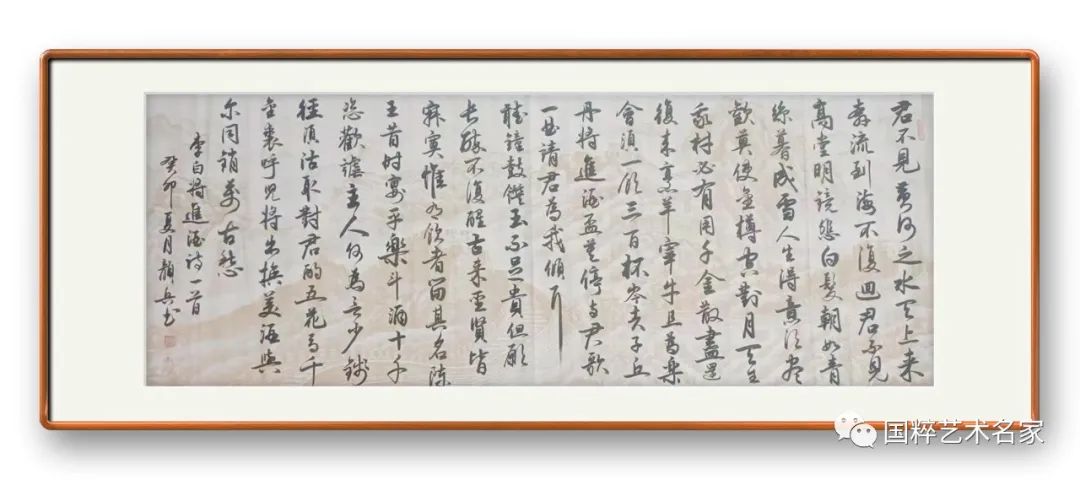 君不見黄河之水天上来
奔流到海不復迴君不見
高堂明镜悲白髮朝如青
絲暮成雪人生得意须尽
歡莫使金樽空對月天生
我材必有用千金散盡還
復来烹羊宰牛且為樂
會須一飲三百杯岑夫子丘
丹将進酒盃莫停与君歌
一曲請君為我傾耳
聽鐘鼓饌玉不足貴但願
长醉不復醒古来聖賢皆
寂寞惟有飲者留其名陳
王昔时宴平樂斗酒十千
恣歡謔主人何為言少錢
徑須沽取對君酌五花马千
金裘呼兒将出换美酒與
尔同销萬古愁
李白将進酒诗一首
癸卯夏月顏兵书
国粹艺术名家